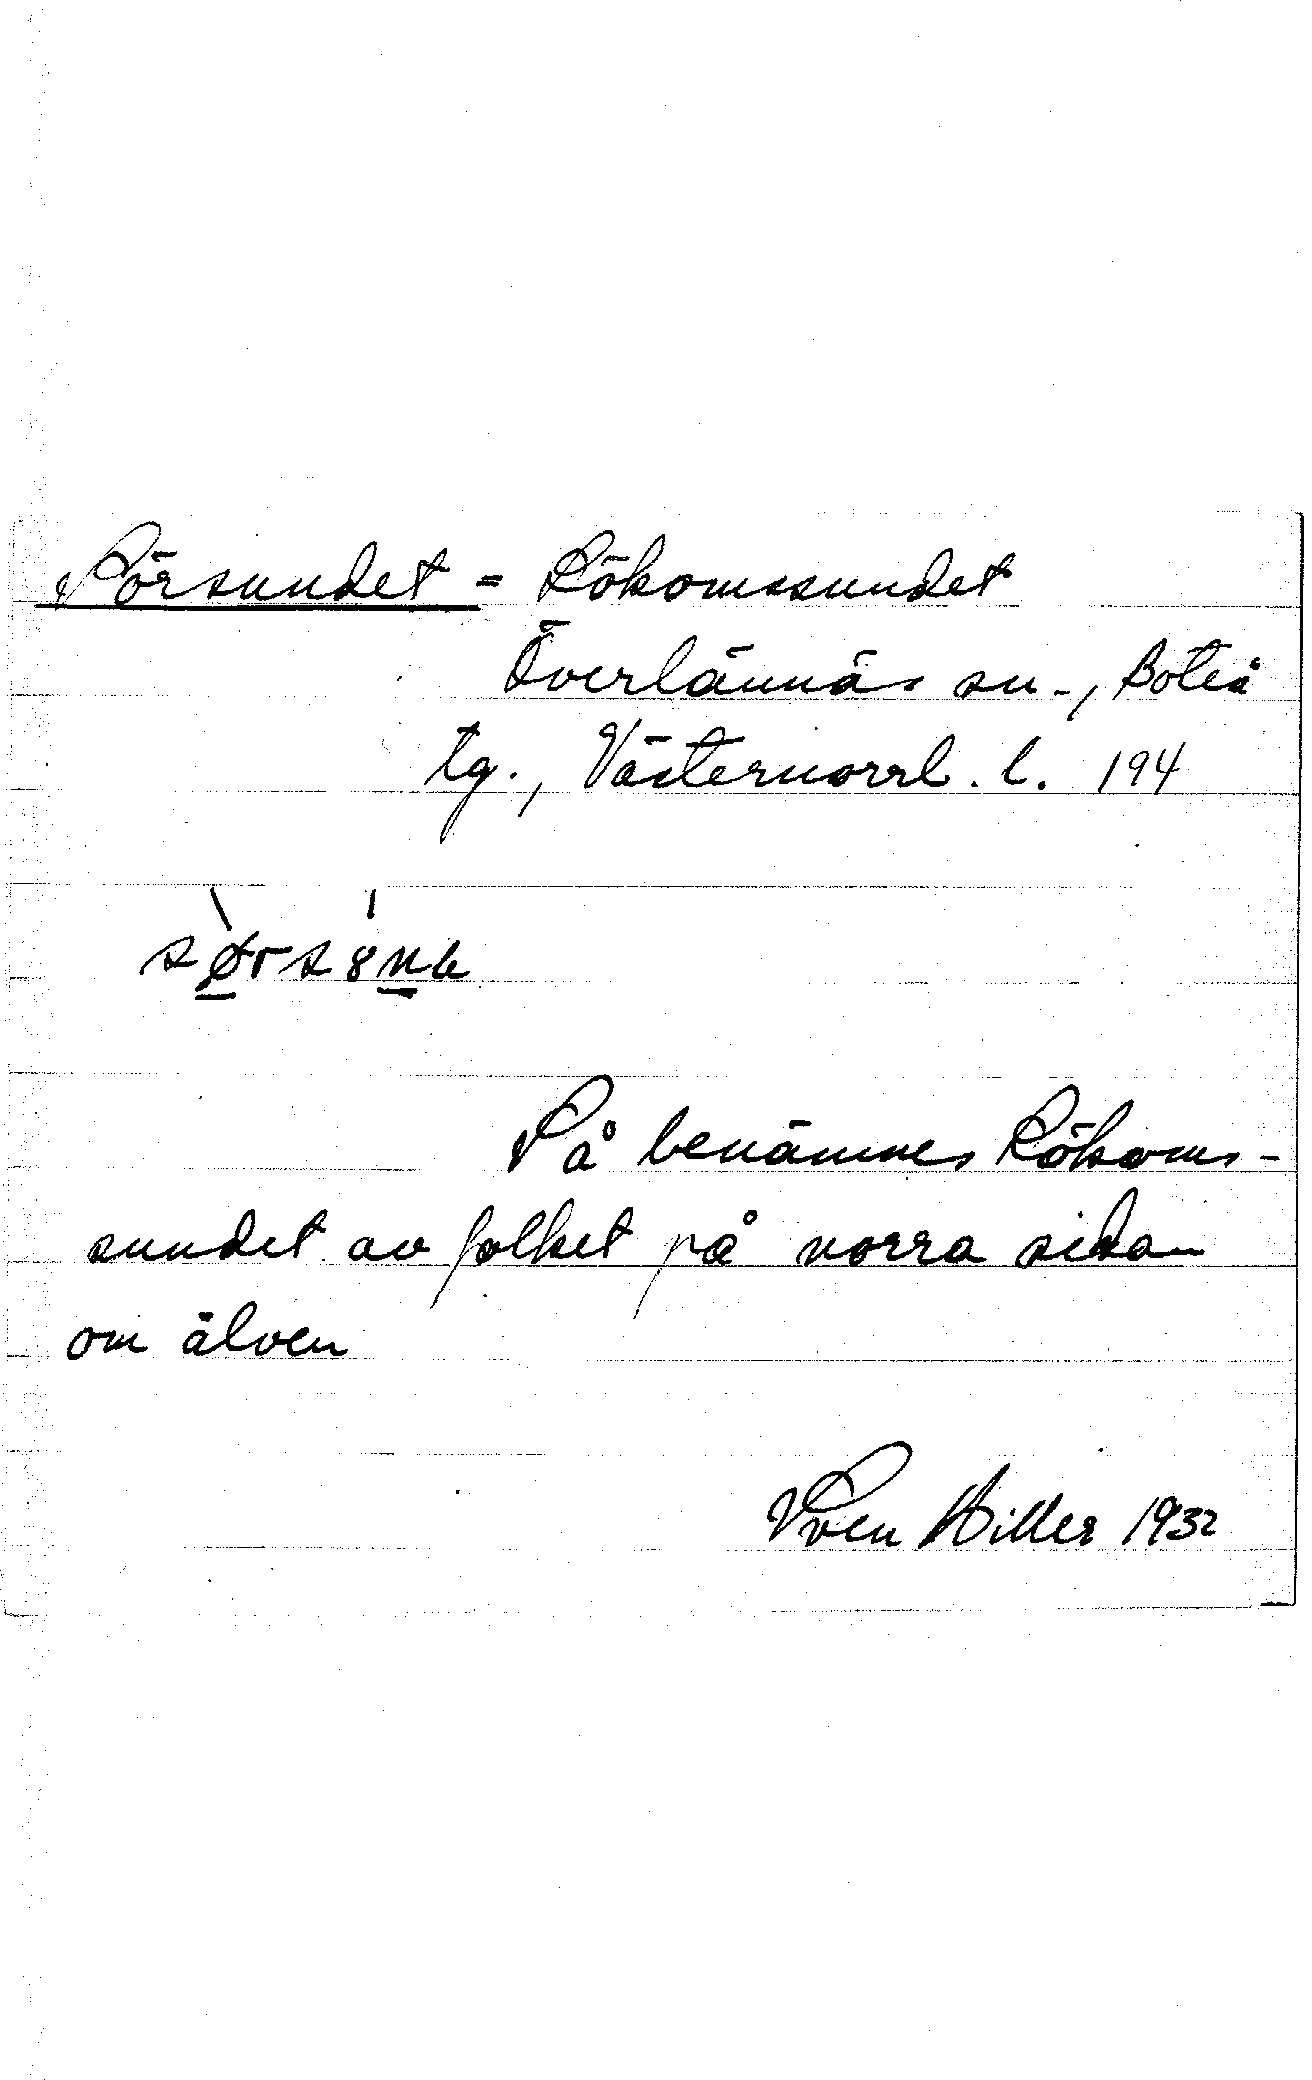 Sörsundet = Rökomssundet
Överlännäs sn., Boteå
tg., Västernorrl. l. 194
Så benämnes Rökoms-
sundet av folket på norra sidan
om älven
Sven Hiller 1932